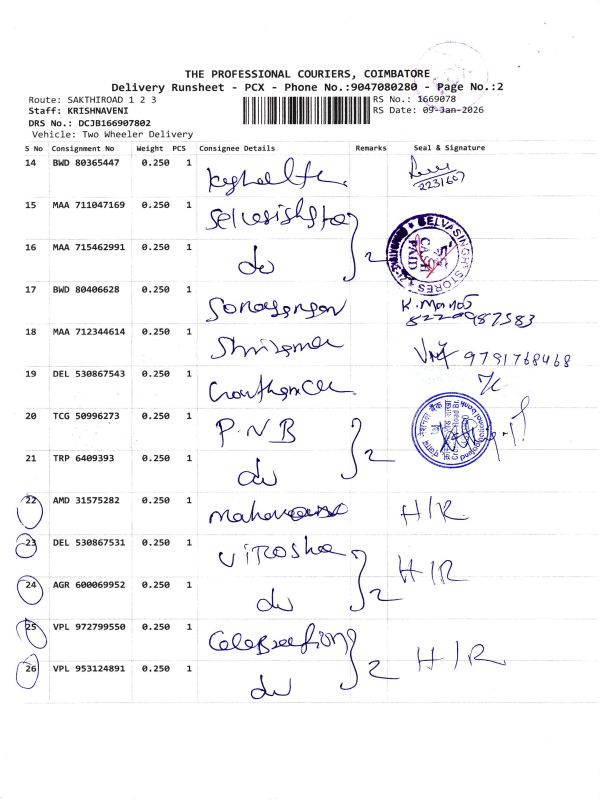 THE PROFESSIONAL COURIERS, COIMBATORE
Delivery Runsheet - PCX - Phone No.:9047080280 - Page No.:2
Route: SAKTHIROAD 1 2 3
RS No.: 1669078
Staff: KRISHNAVENI
RS Date: 09-Jan-2026
DRS No.: DCJB166907802
Vehicle: Two Wheeler Delivery
S No Consignment No Weight PCS Consignee Details Remarks Seal & Signature
14 BWD 80365447 0.250 1
15 MAA 711047169 0.250 1
SELVA SINGH STORES
CASH PAID
16 MAA 715462991 0.250 1 do 2
17 BWD 80406628 0.250 1 K. Manoj
8220987583
18 MAA 712344614 0.250 1 9791768468
19 DEL 530867543 0.250 1
20 TCG 50996273 0.250 1 P.N.B 2
21 TRP 6409393 0.250 1 do
22 AMD 31575282 0.250 1 H/R
23 DEL 530867531 0.250 1 H/R
24 AGR 600069952 0.250 1 do 2
25 VPL 972799550 0.250 1 Celebration H/R
26 VPL 953124891 0.250 1 do 2